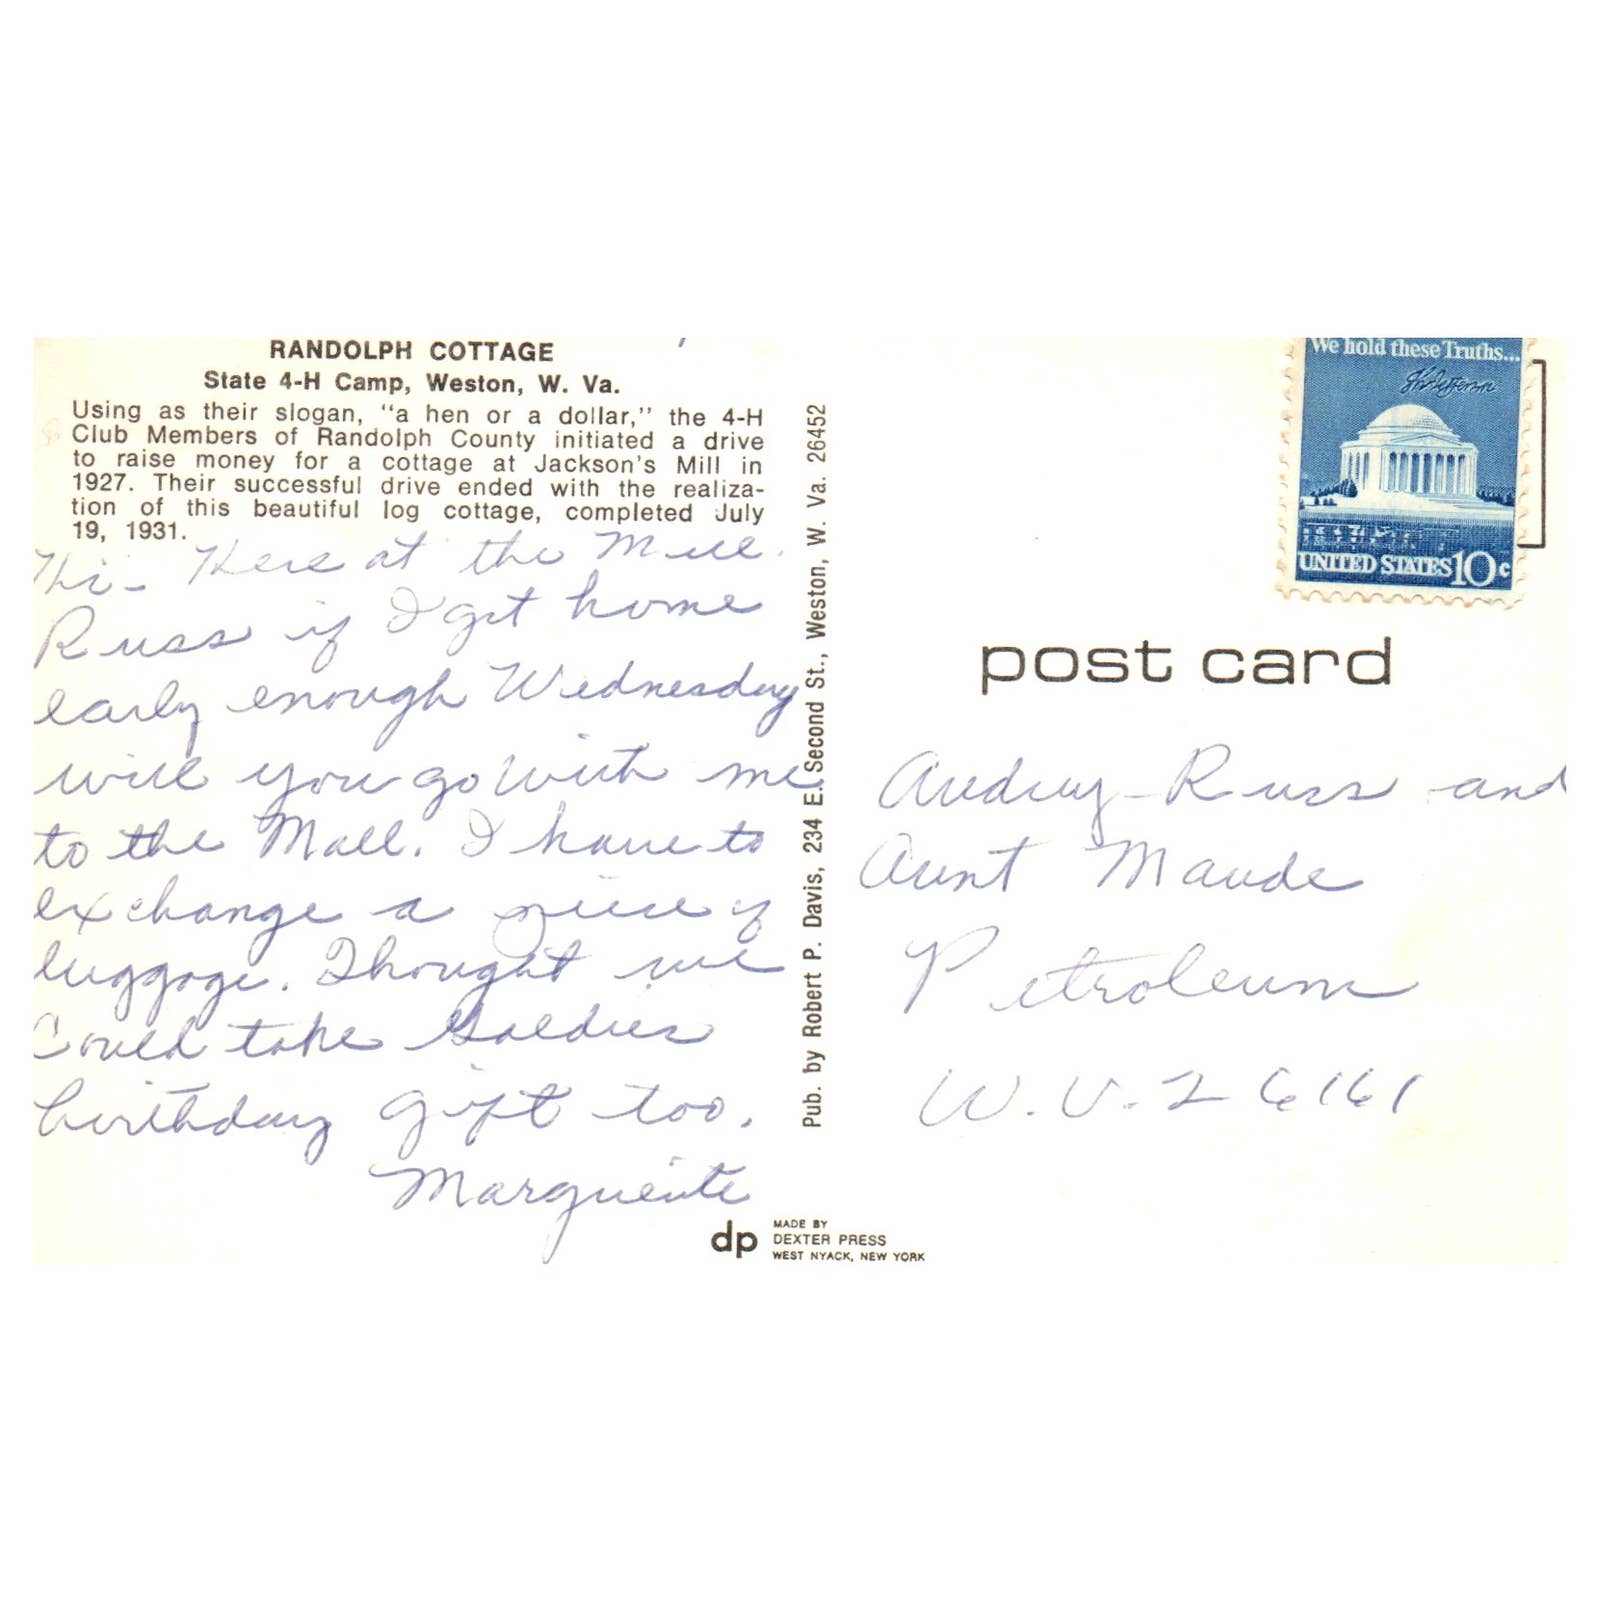 RANDOLPH COTTAGE
State 4-H Camp, Weston, W. Va.
Using as their slogan, "a hen or a dollar," the 4-H
Club Members of Randolph County initiated a drive
to raise money for a cottage at Jackson's Mill in
1927. Their successful drive ended with the realiza-
tion of this beautiful log cottage, completed July
19, 1931.
Hi - Here at the Mill.
Russ if I get home
early enough Wednesday
will you go with me
to the Mall. I have to
exchange a piece of
luggage. Thought we
Could take Goldies
birthday gift too.
Marguerite
Pub. by Robert P. Davis, 234 E. Second St., Weston, W. Va. 26452
dp
MADE BY
DEXTER PRESS
WEST NYACK, NEW YORK
We hold these Truths...
Th Jefferson
UNITED STATES 10c
post card
Audrey - Russ and
Aunt Maude
Petroleum
W.V. 26161